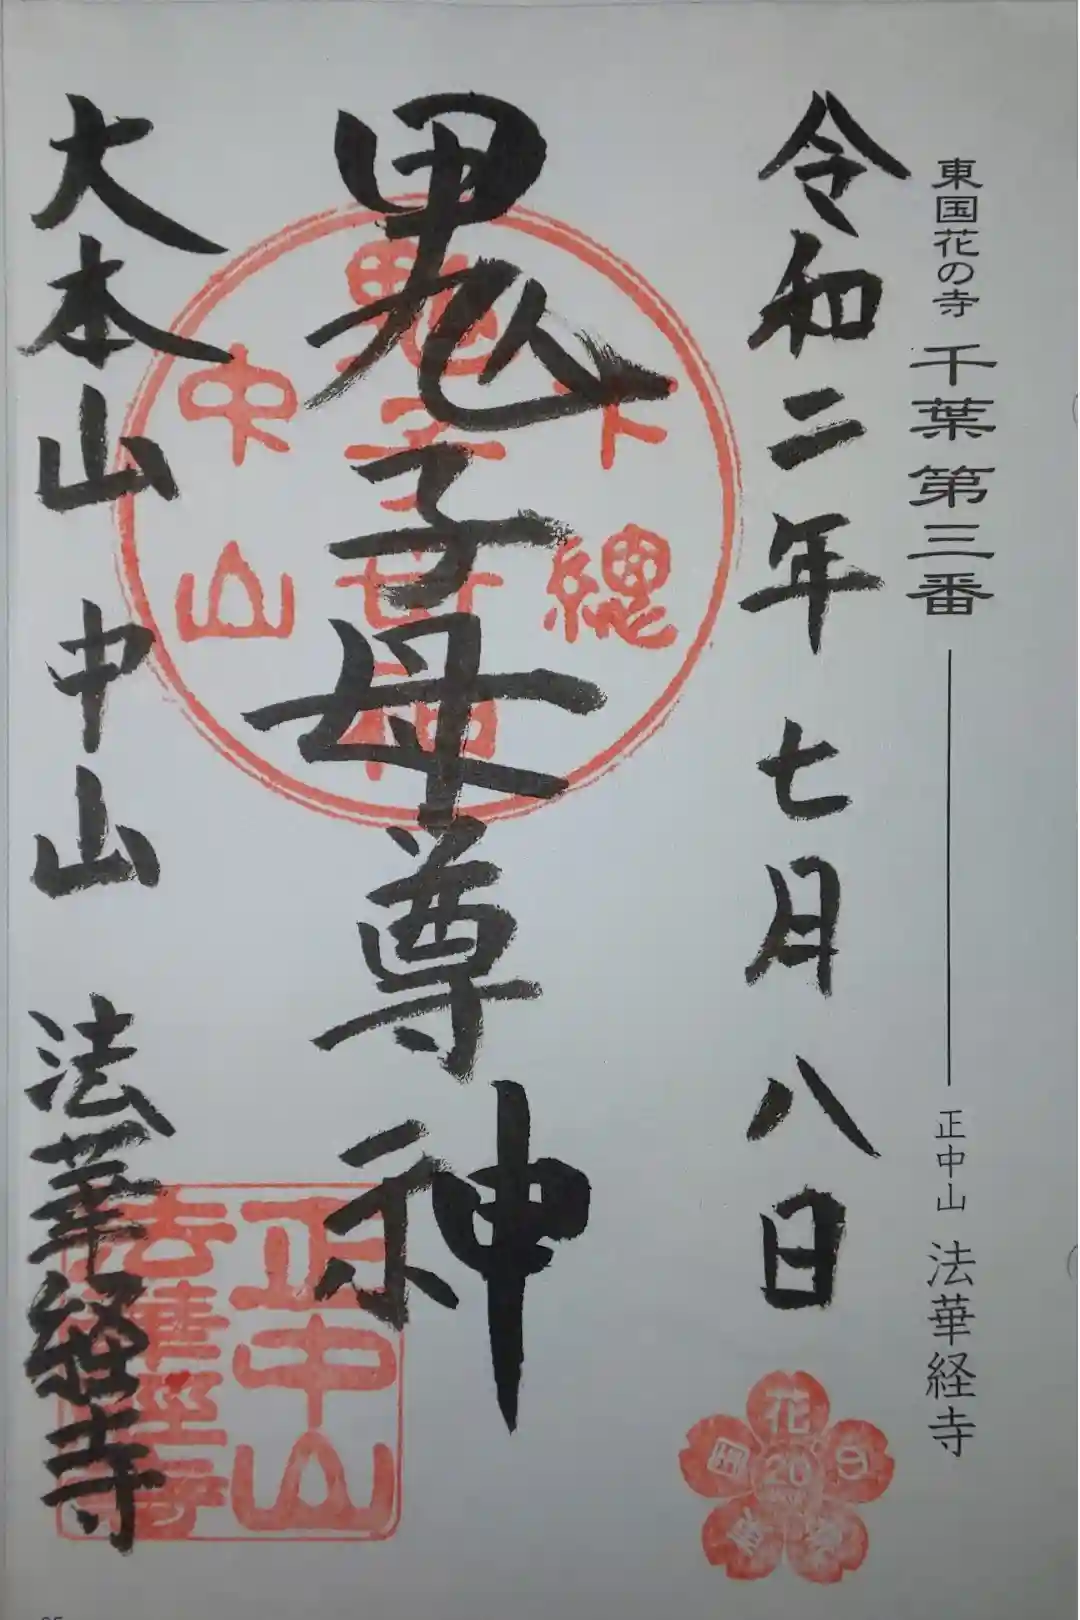 東国花の寺 千葉第三番 正中山 法華経寺
令和二年七月八日
鬼子母尊神
大本山 中山 法華経寺
下總
鬼子母神
中山
正中山
法華經寺
花の寺
国
20